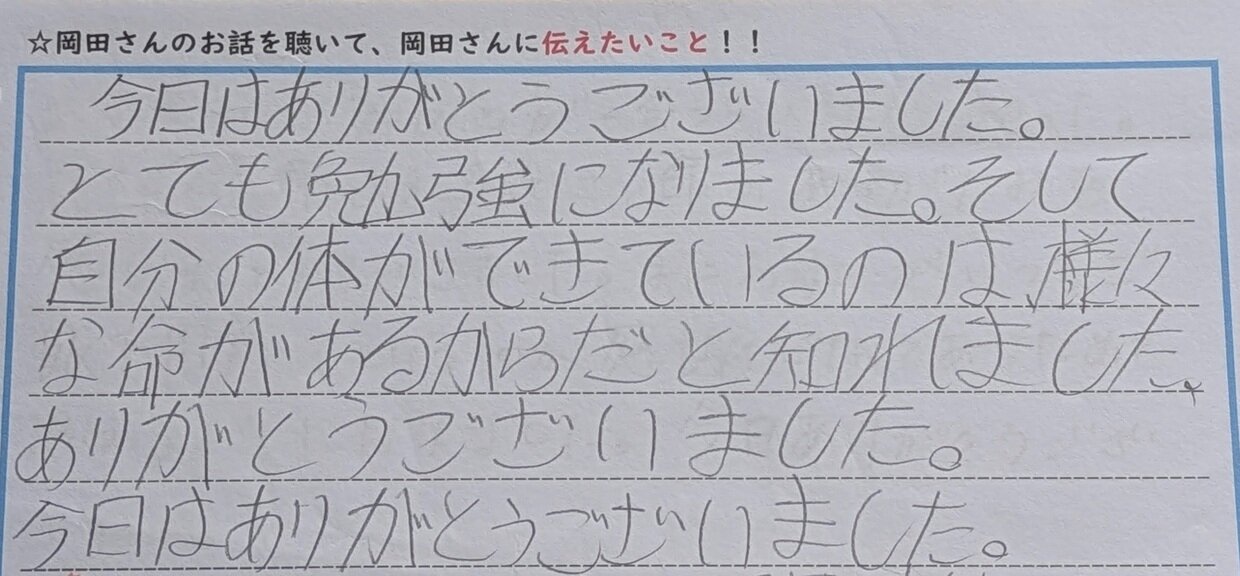 ☆岡田さんのお話を聴いて、岡田さんに伝えたいこと！！
今日はありがとうございました。
とても勉強になりました。そして
自分の体ができているのは、様々
な命があるからだと知れました、
ありがとうございました。
今日はありがとうございました。